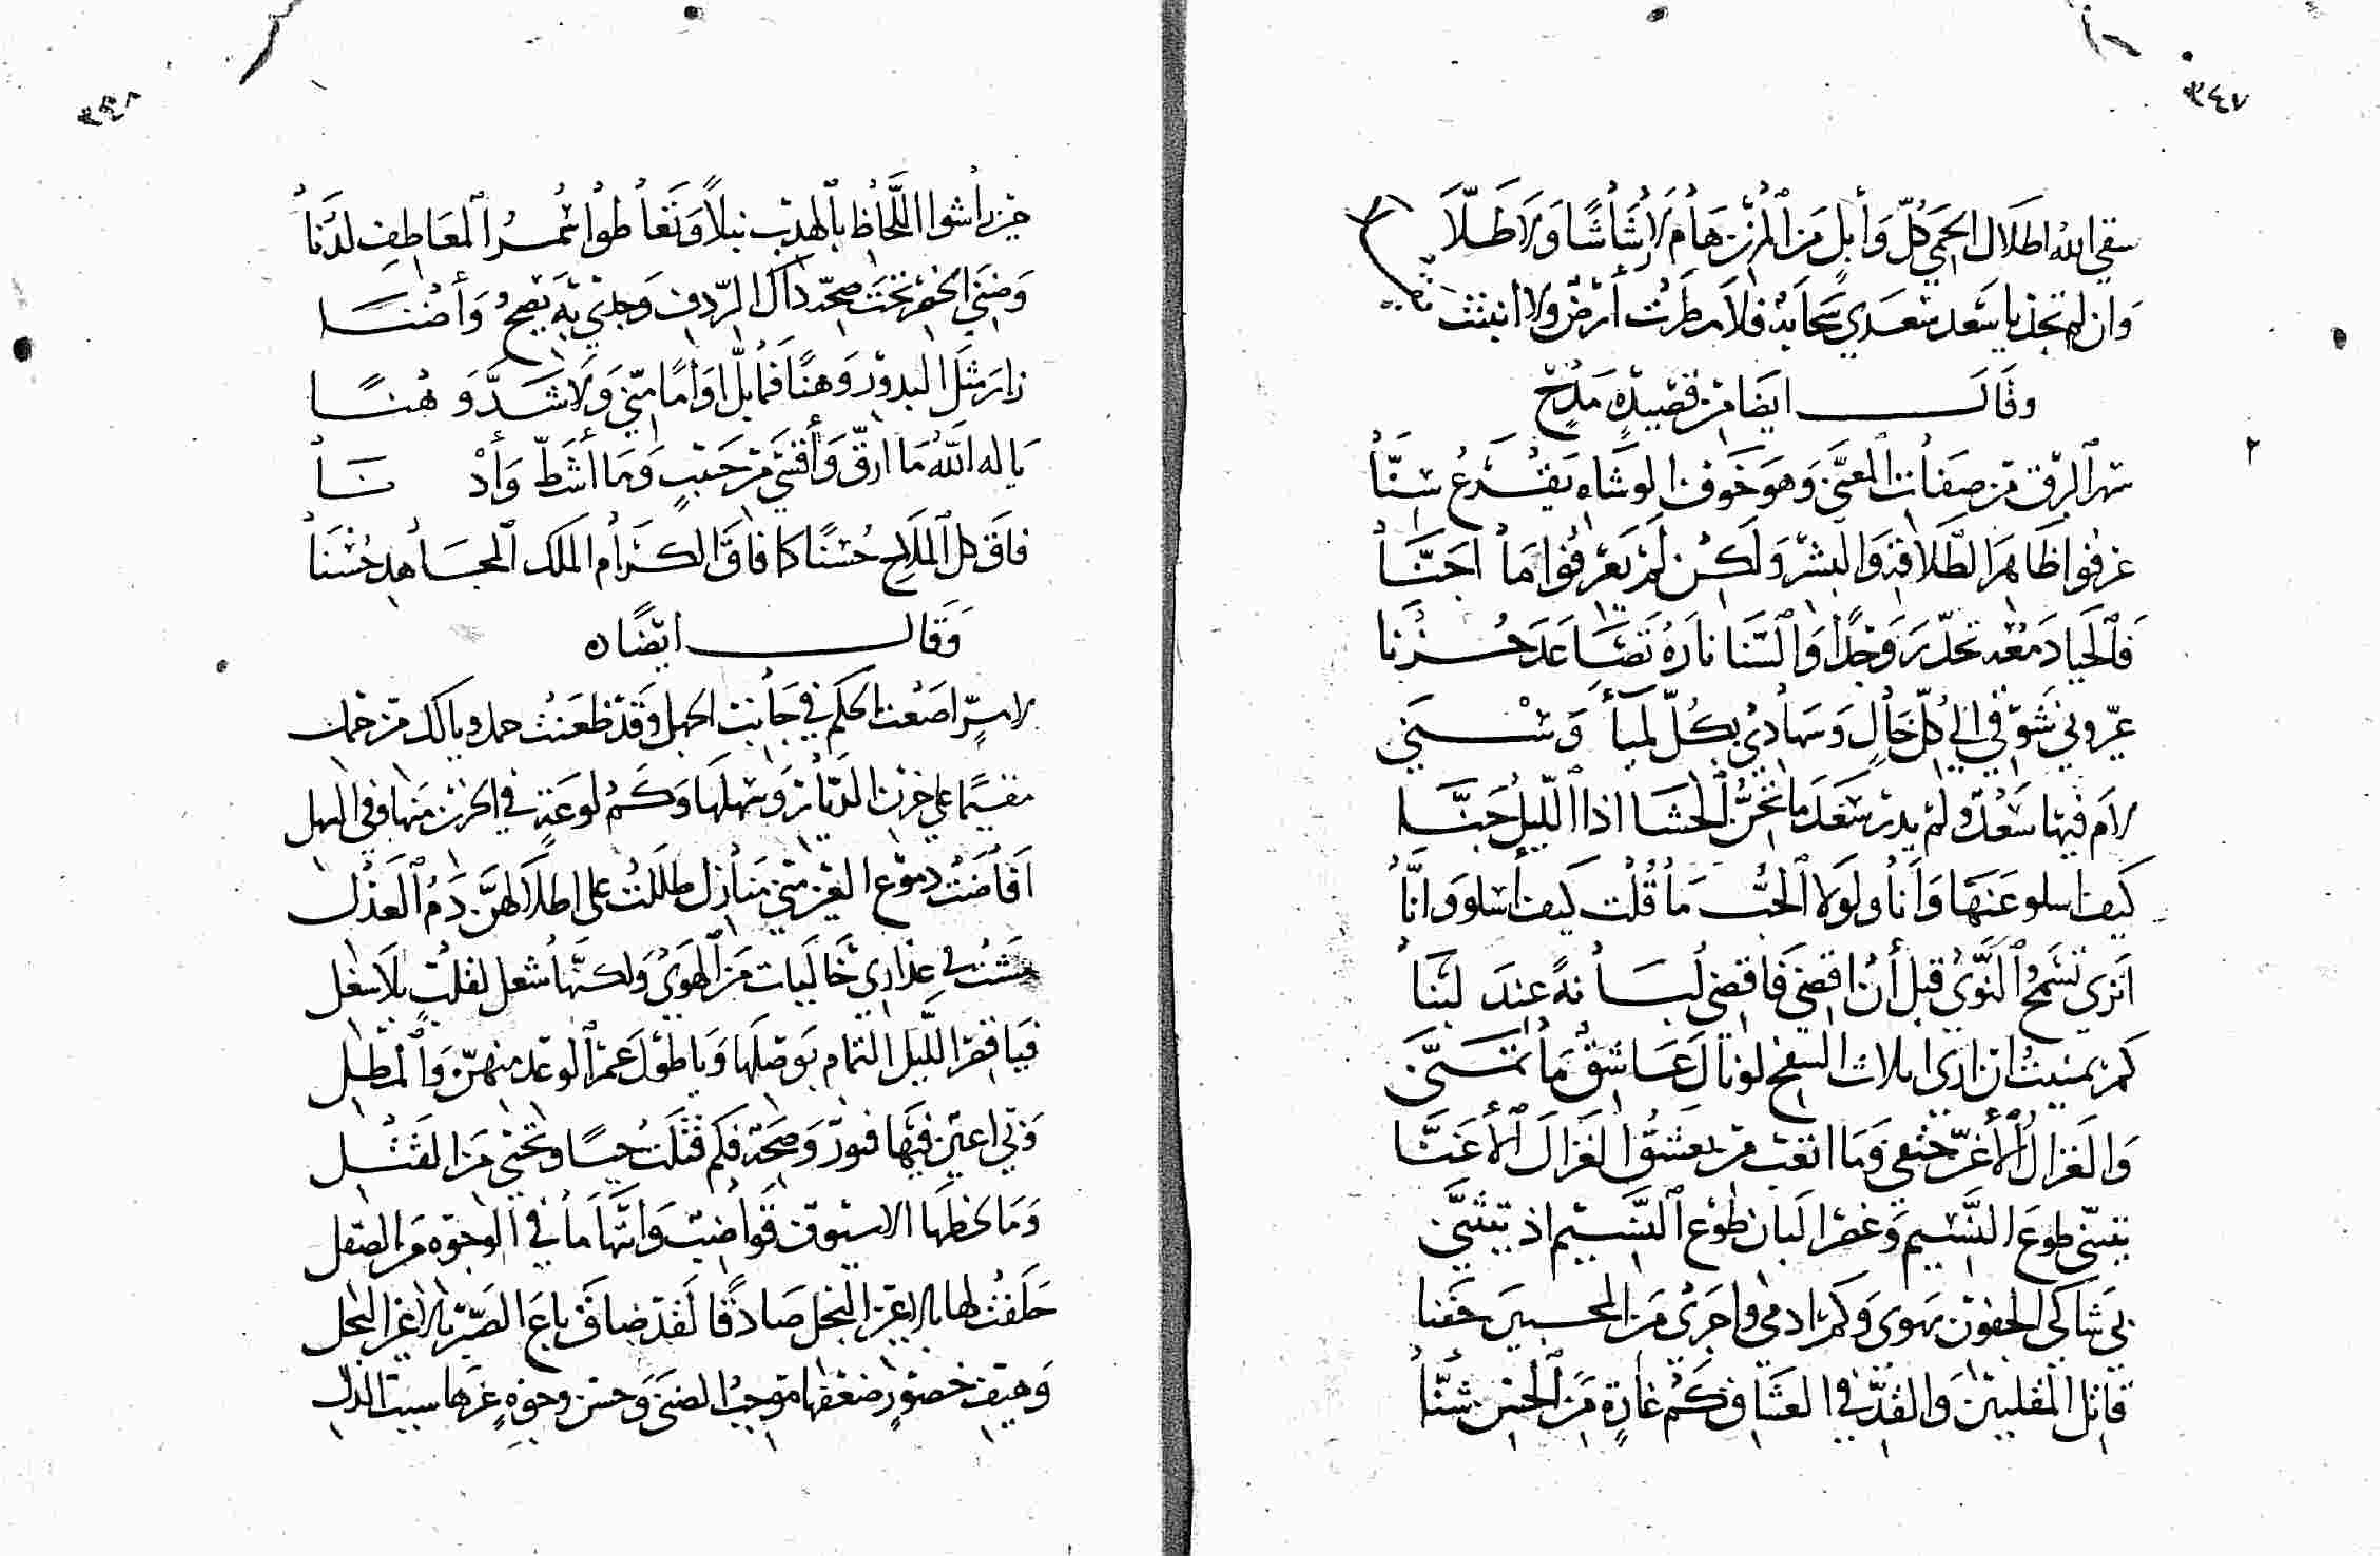 ٣٤٧
سقى الله اطلال الحمى كلّ وابل من المزن هام لا رشاشا ولا طلّا
وان لم تجد يا سعد سعدي سحابة فلا مطرت أرض ولا انبتت
وقال ايضا من قصيدة مدح
سهر البرق من صفات المعنّى وهو خوف الوشاة يقرع سنّا
عرفوا ظاهر الطلاقة والبشر ولكن لم يعرفوا ما اجنّا
فالحيا دمعه تحدّر وجدا والسنا ناره تصاعد حزنا
عيّروني شوقي الى كلّ خال وسهادي بكلّ لمياء وسنى
لام فيها سعد ولم يدر سعد ما تجنّ الحشا اذا الليل جنّا
كيف اسلو عنها وأنا ولولا الحبّ ما قلت كيف أسلو وانّا
اترى تسمح النوى قبل أن اقضي فاقضي لبانة عند لبنا
كم تمنيت ان ارى اثلاث السفح لو نال عاشق ما تمنّى
والغزال الأغرّ حتفي وما اتعب من يعشق الغزال الأغنّا
يتثنى طوع النسيم وغصن البان طوع النسيم اذ يتثنّى
بي شاكي الجفون يهوى وكم ادمى واجرى من المحبين جفنا
قاتل المقلتين والقدّ في العشاق كم غارة من الحسن شنّا
٣٤٨
حين راشوا اللحاظ بالهدب نبلا وتعاطوا سمر المعاطف لدنا
وضنى الخصر تحت صحّة ذاك الردف وجدي به يصحّ وأضنا
زار مثل البدور وهنا فما بلّ اواما منّي ولا شدّ وهنا
يا له الله ما ارقّ وأقسى من حبيب وما أشطّ وأدنا
فاق كل الملاح حسنا كما فاق الكرام الملك المجاهد حسنا
وقال ايضا
لاسرّ اضعت الحلم في جانب الجهل وقد ظعنت جمل ويا لك من جمل
مقيما على حزن الديار وسهلها وكم لوعة في الحزن منها وفي السهل
افاضت دموع العين مني منازل طللت على اطلالهنّ دم العذل
مشت في عذارى خاليات من الهوى ولكنها شغل لقلب بلا شغل
فيا قصر الليل التمام بوصلها ويا طول عمر الوعد منهنّ والمطل
وبي اعين فيها فتور وصحة فكم قتلت حبا وتحيي من القتل
وما لحظها الا سيوف قواضب وانها ما في الوجوه من الصقل
حلفت لها بالاعين النجل صادقا لقد ضاق باع الصبر بالاعين النجل
وهيف خصور ضعفها موجب الضنى وحسن وجوه عزها سبب الذل